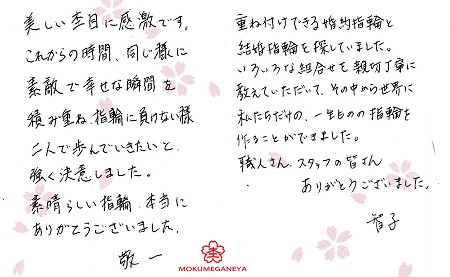 美しい杢目に感激です。
これからの時間、同じ様に
素敵で幸せな瞬間を
積み重ね、指輪に負けない様
二人で歩んでいきたいと、
強く決意しました。
素晴らしい指輪、本当に
ありがとうございました。
敬一
重ね付けできる婚約指輪と
結婚指輪を探していました。
いろいろな組合せを親切丁寧に
教えていただいて、その中から世界に
私たちだけの、一生ものの指輪を
作ることができました。
職人さん、スタッフの皆さん
ありがとうございました。
智子
MOKUMEGANEYA